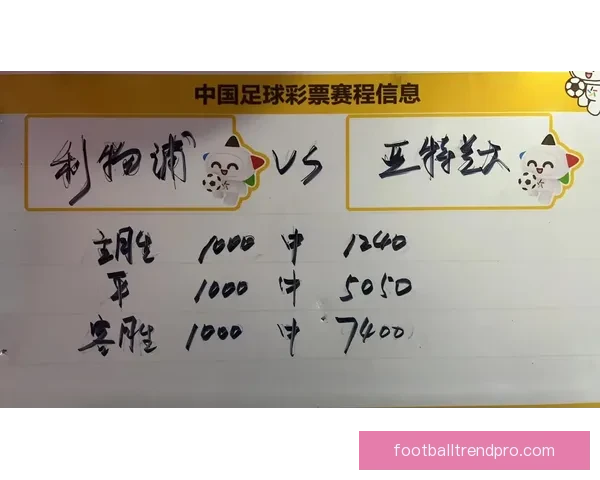 中国足球彩票赛程信息
利物浦 VS 亚特兰大
主胜 1000 中 1240
平 1000 中 5050
客胜 1000 中 7400
footballtrendpro.com